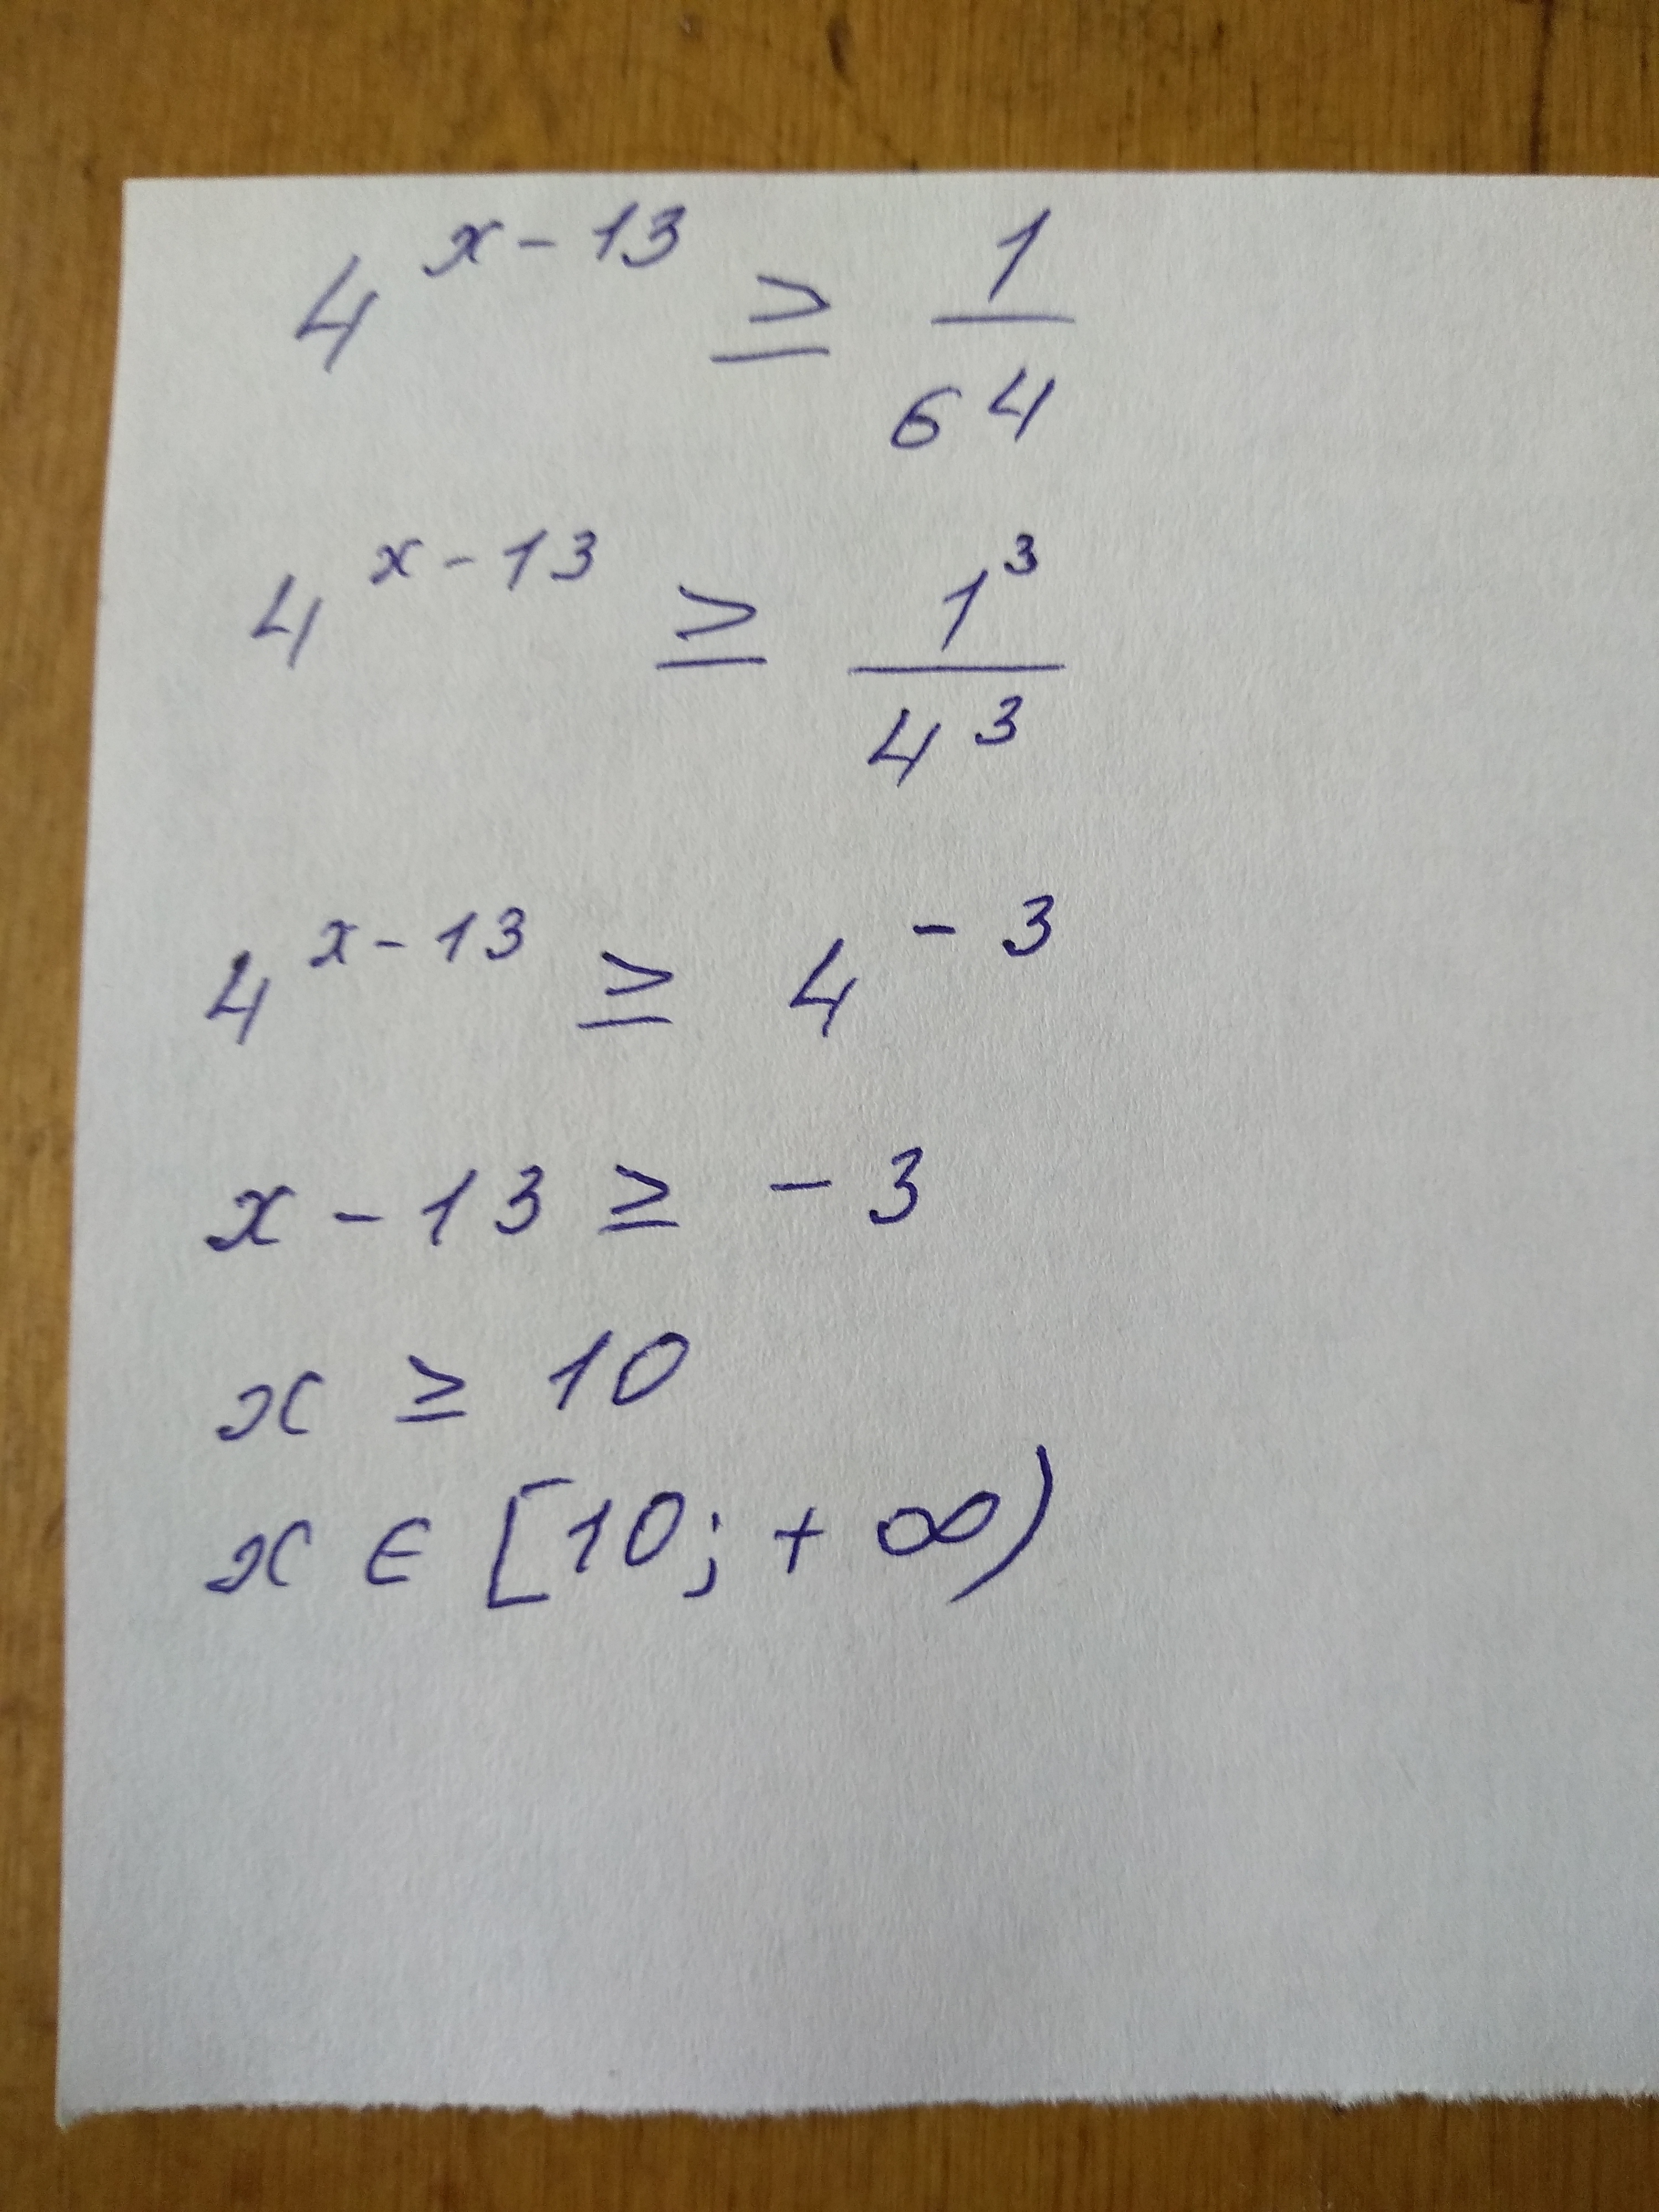 4^{x-13} ≥ \frac{1}{64}
4^{x-13} ≥ \frac{1^3}{4^3}
4^{x-13} ≥ 4^{-3}
x - 13 ≥ -3
x ≥ 10
x ∈ [10; +∞)